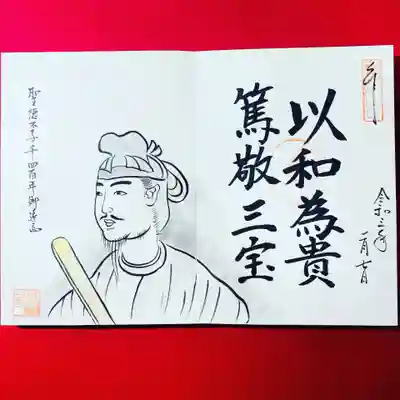 以和為貴
篤敬三宝
令和三年
一月廿日
聖徳太子千四百年御遠忌